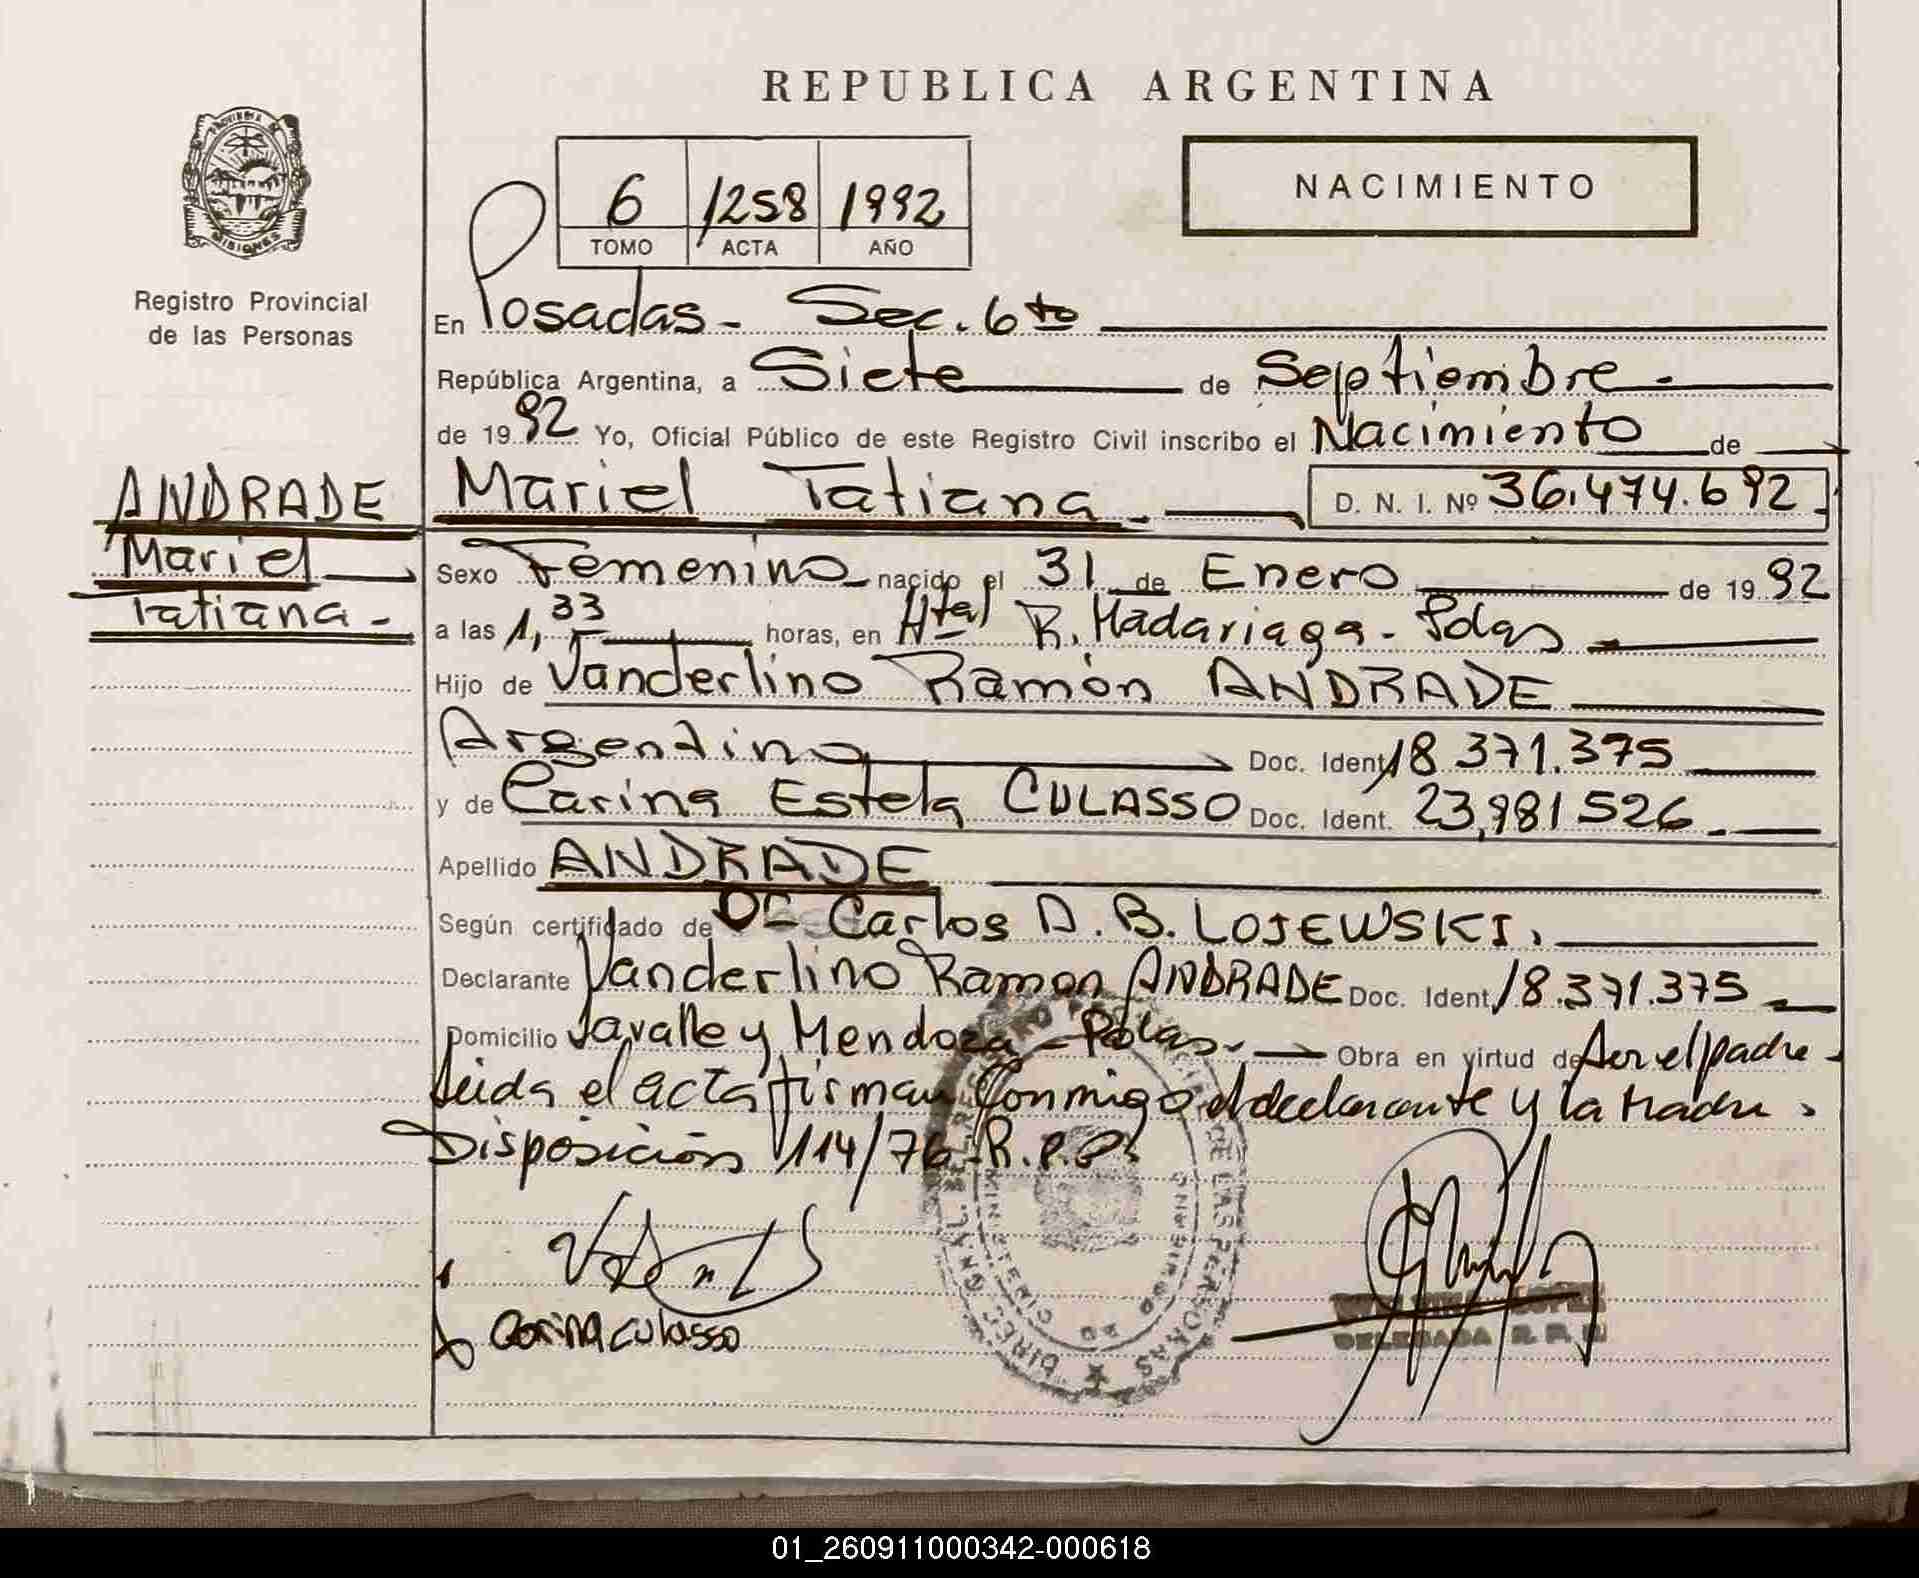 REPUBLICA ARGENTINA
NACIMIENTO
6 1258 1992
TOMO ACTA AÑO
PROVINCIA DE MISIONES
Registro Provincial
de las Personas
En Posadas - Sec. 6to
República Argentina, a Siete de Septiembre -
de 1992 Yo, Oficial Público de este Registro Civil inscribo el Nacimiento de
ANDRADE
Mariel
Tatiana -
Mariel Tatiana - D. N. I. Nº 36.474.692
Sexo Femenino nacido el 31 de Enero de 1992
a las 1,33 horas, en Htal R. Madariaga - Pdas
Hijo de Vanderlino Ramón ANDRADE
Argentino Doc. Ident. 18.371.375
y de Carina Estela CULASSO Doc. Ident. 23,981526 -
Apellido ANDRADE
Según certificado de Dr Carlos D. B. LOJEWSKI.
Declarante Vanderlino Ramon ANDRADE Doc. Ident. 18.371.375
Domicilio Lavalle y Mendoza - Pdas. Obra en virtud de ser el padre -
Leida el acta firman conmigo el declarante y la madre.
Disposición 114/76 R.P.P.
Carina Culasso
DELEGADA R. P. P.
DE LAS PERSONAS
MINISTERIO
DIREC. GRAL. DEL
01_260911000342-000618